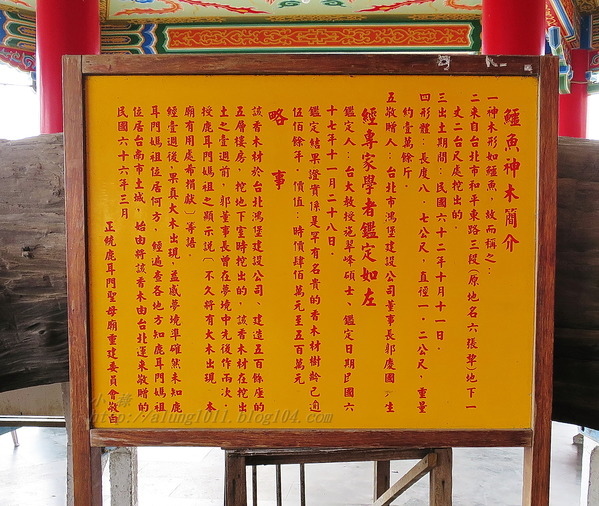 鱷魚神木簡介
一神木形如鱷魚，故而稱之：
二來自台北市和平東路三段(原地名六張犂)地下一
丈二台尺處挖出的．
三出土期間：民國六十二年十月十一日．
四形體：長度八．七公尺，直徑一．二公尺，重量
約壹萬餘斤．
五敬贈人：台北市鴻堡建設公司董事長郭慶國先生
經專家學者鑑定如左
鑑定人：台大教授施翠峰碩士、鑑定日期民國六
十七年十一月二十八日．
鑑定結果證實係是罕有名貴的香木材樹齡已逾
伍佰餘年，價值：時價肆佰萬元至五百萬元
略事
該香木材於台北鴻堡建設公司，建造五百餘座的
五層樓房，挖地下室時挖出的，該香木材在挖出
土之壹週前，郭董事長曾在夢境中先後作兩次
授鹿耳門媽祖之顯示說〔不久將有大木出現，本
廟有用處希捐獻〕等語．
經壹週後，果真大木出現，益感夢境準確然未知鹿
耳門媽祖位居何方，經遍查各地方知鹿耳門媽祖
位居台南市土城，始由將該香木由台北運來敬贈的
民國六十六年三月
正統鹿耳門聖母廟重建委員會敬白
小綠
http://alung1011.blog104.com/